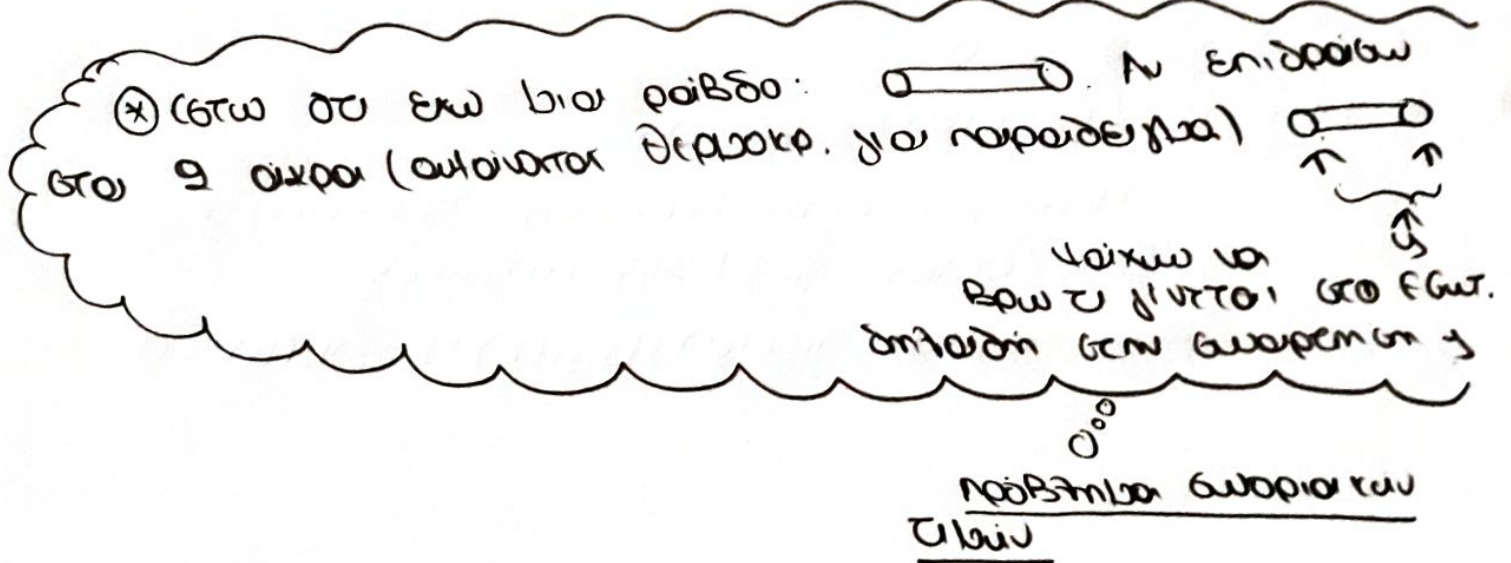 (*) Έστω ότι έχω μια ράβδο: . Αν επιδράσω
στα 2 άκρα (αυξάνεται θερμοκρ. για παράδειγμα)
y
ψάχνω να
βρω τι γίνεται στο εσωτ.
δηλαδή στην συνάρτηση y
πρόβλημα συνοριακών
τιμών